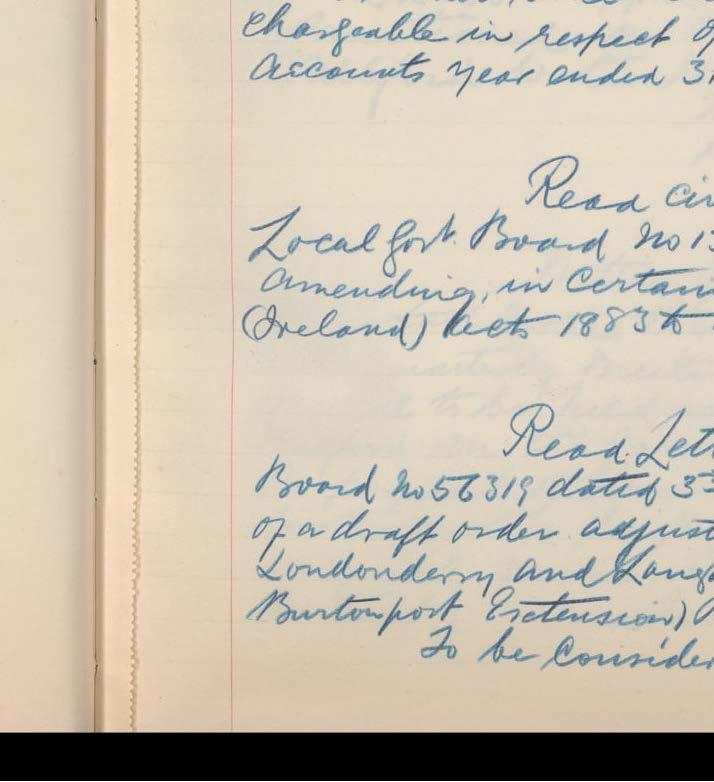 chargeable in respect of
accounts year ended 31
Read cir
Local Govt. Board No 13
amending, in certain
(Ireland) Acts 1883 to
Read Lett
Board No 56319 dated 3rd
of a draft order adjust
Londonderry and Loug
Burtonport Extension)
To be consider